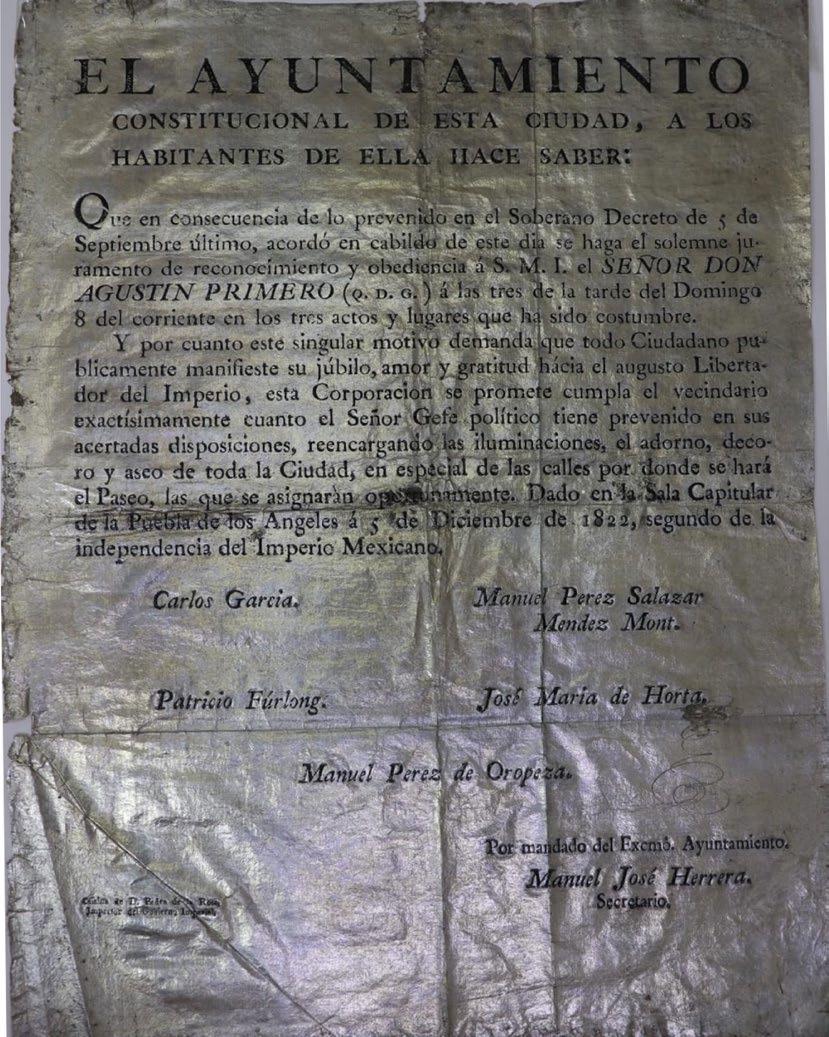 EL AYUNTAMIENTO
CONSTITUCIONAL DE ESTA CIUDAD, A LOS
HABITANTES DE ELLA HACE SABER:
Que en consecuencia de lo prevenido en el Soberano Decreto de 5 de
Septiembre último, acordó en cabildo de este dia se haga el solemne ju-
ramento de reconocimiento y obediencia á S. M. I. el SEÑOR DON
AGUSTIN PRIMERO (Q. D. G.) á las tres de la tarde del Domingo
8 del corriente en los tres actos y lugares que ha sido costumbre.
Y por cuanto este singular motivo demanda que todo Ciudadano pu-
blicamente manifieste su júbilo, amor y gratitud hácia el augusto Liberta-
dor del Imperio, esta Corporacion se promete cumpla el vecindario
exactísimamente cuanto el Señor Gefe político tiene prevenido en sus
acertadas disposiciones, reencargando las iluminaciones, el adorno, deco-
ro y aseo de toda la Ciudad, en especial de las calles por donde se hará
el Paseo, las que se asignaràn oportunamente. Dado en la Sala Capitular
de la Puebla de los Angeles á 5 de Diciembre de 1822, segundo de la
independencia del Imperio Mexicano.
Carlos Garcia.
Manuel Perez Salazar
Mendez Mont.
Patricio Fúrlong.
José Maria de Horta.
Manuel Perez de Oropeza.
Por mandado del Exemô. Ayuntamiento.
Manuel José Herrera.
Secretario.
Oficina de D. Pedro de la Rosa,
Impresor del Gobierno Imperial.